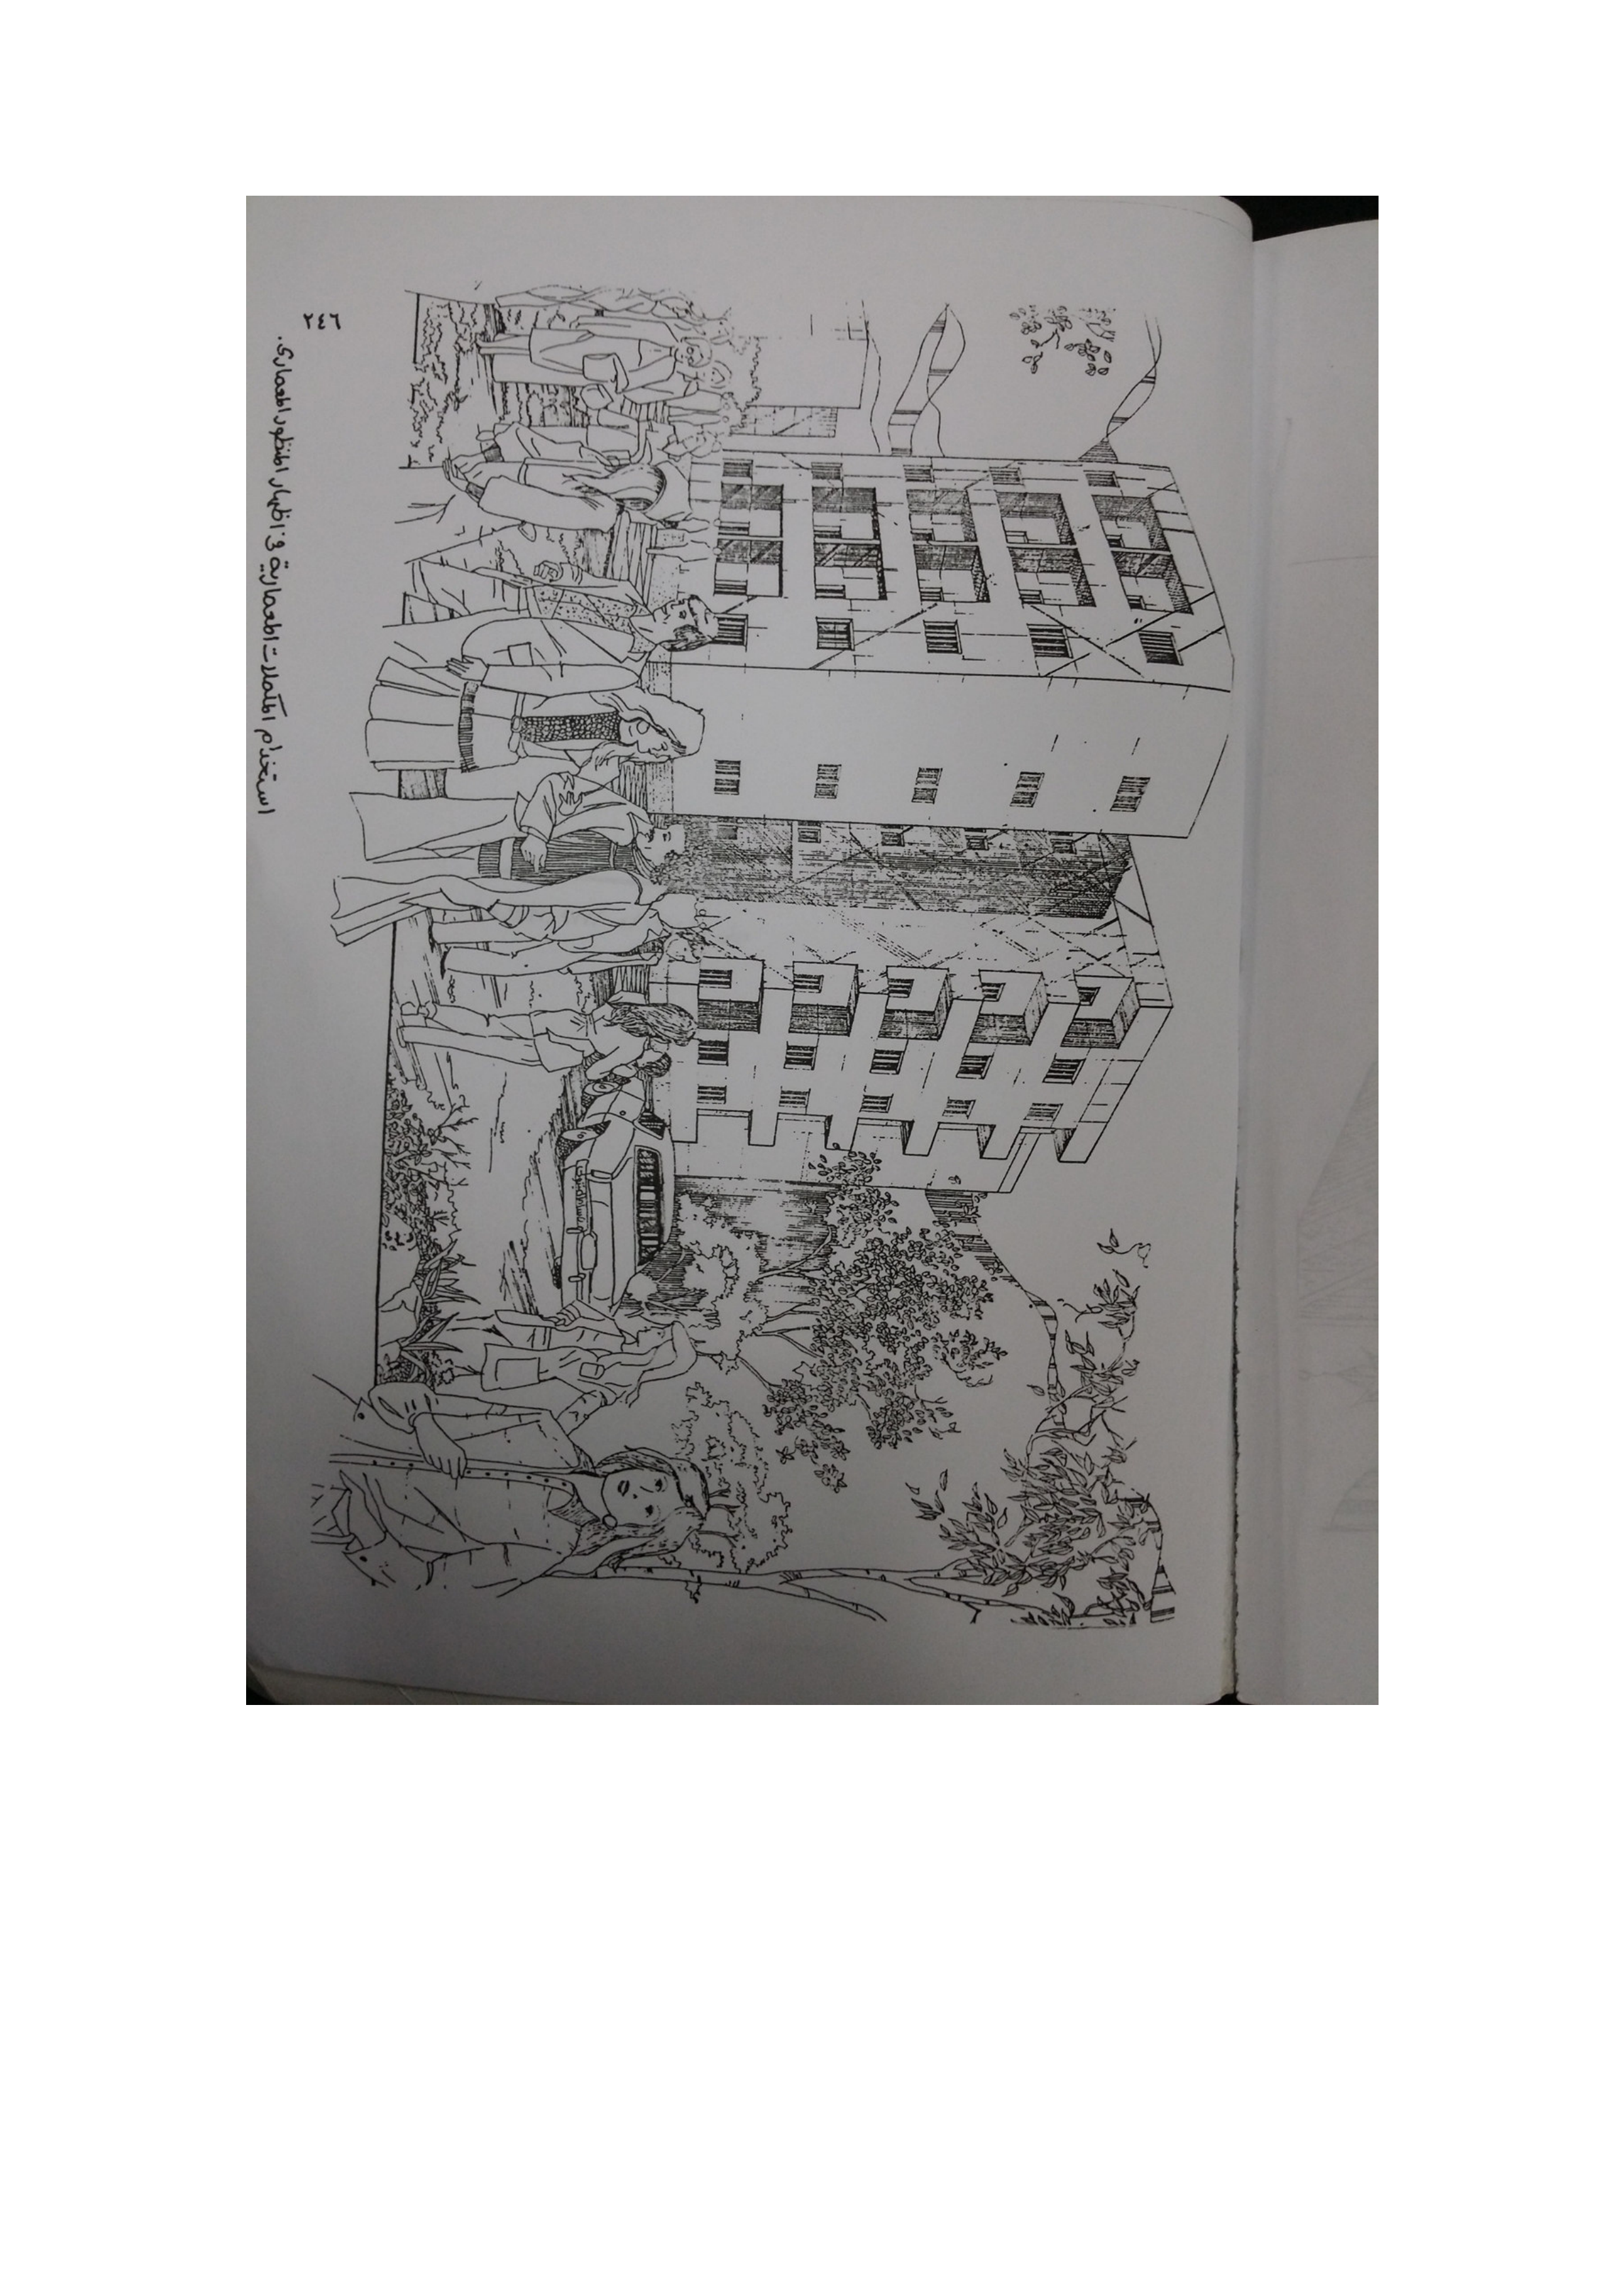 ٢٤٦
استخدام المكملات المعمارية في اظهار المنظور المعماري.